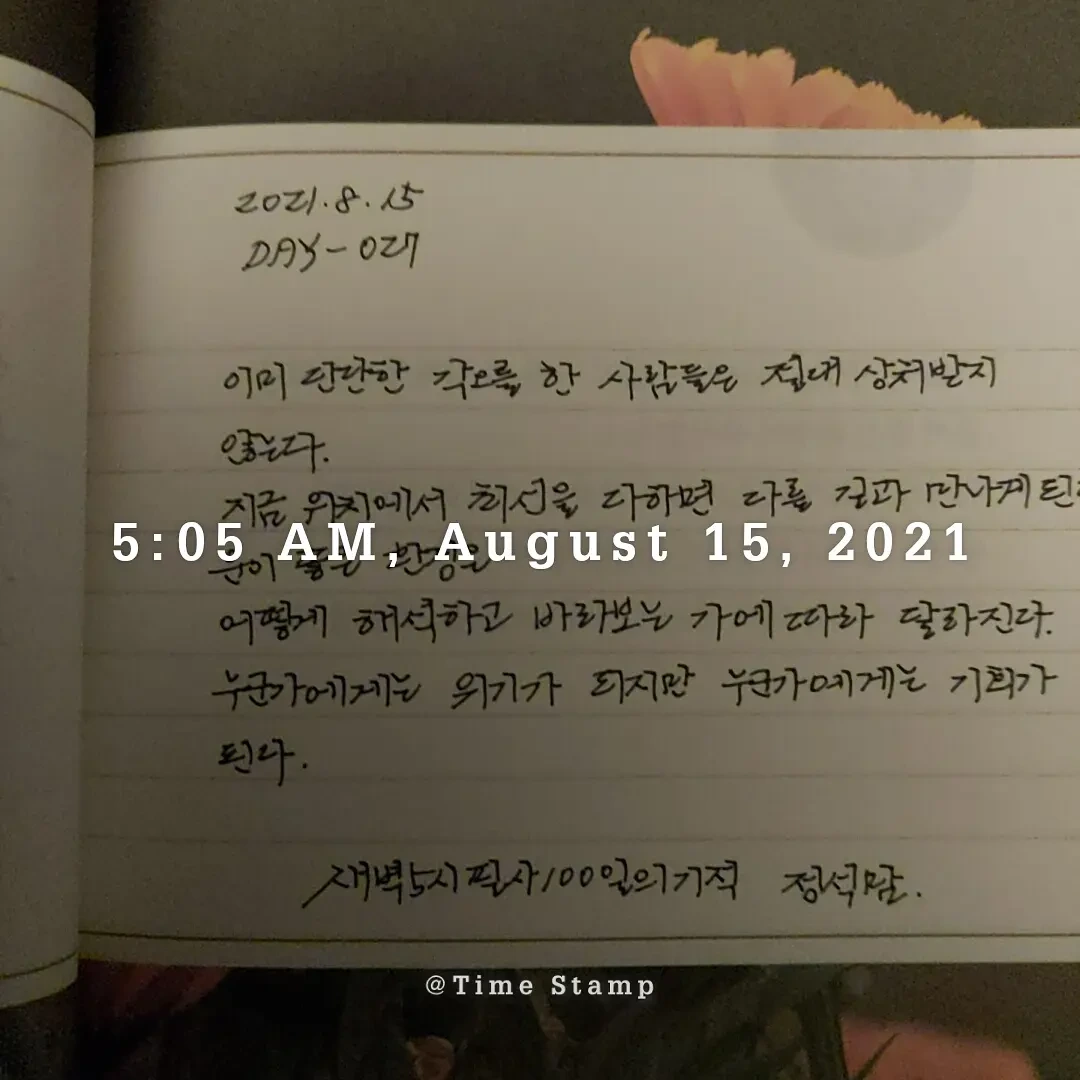 2021.8.15
DAY-027
이미 단단한 각오를 한 사람들은 절대 상처받지
않는다.
지금 위치에서 최선을 다하면 다를 결과 만나게 된
5:05 AM, August 15, 2021
눈이
어떻게 해석하고 바라보는 가에 따라 달라진다.
누군가에게는 위기가 되지만 누군가에게는 기회가
된다.
새벽5시 필사100일의기적 정석맘.
@Time Stamp